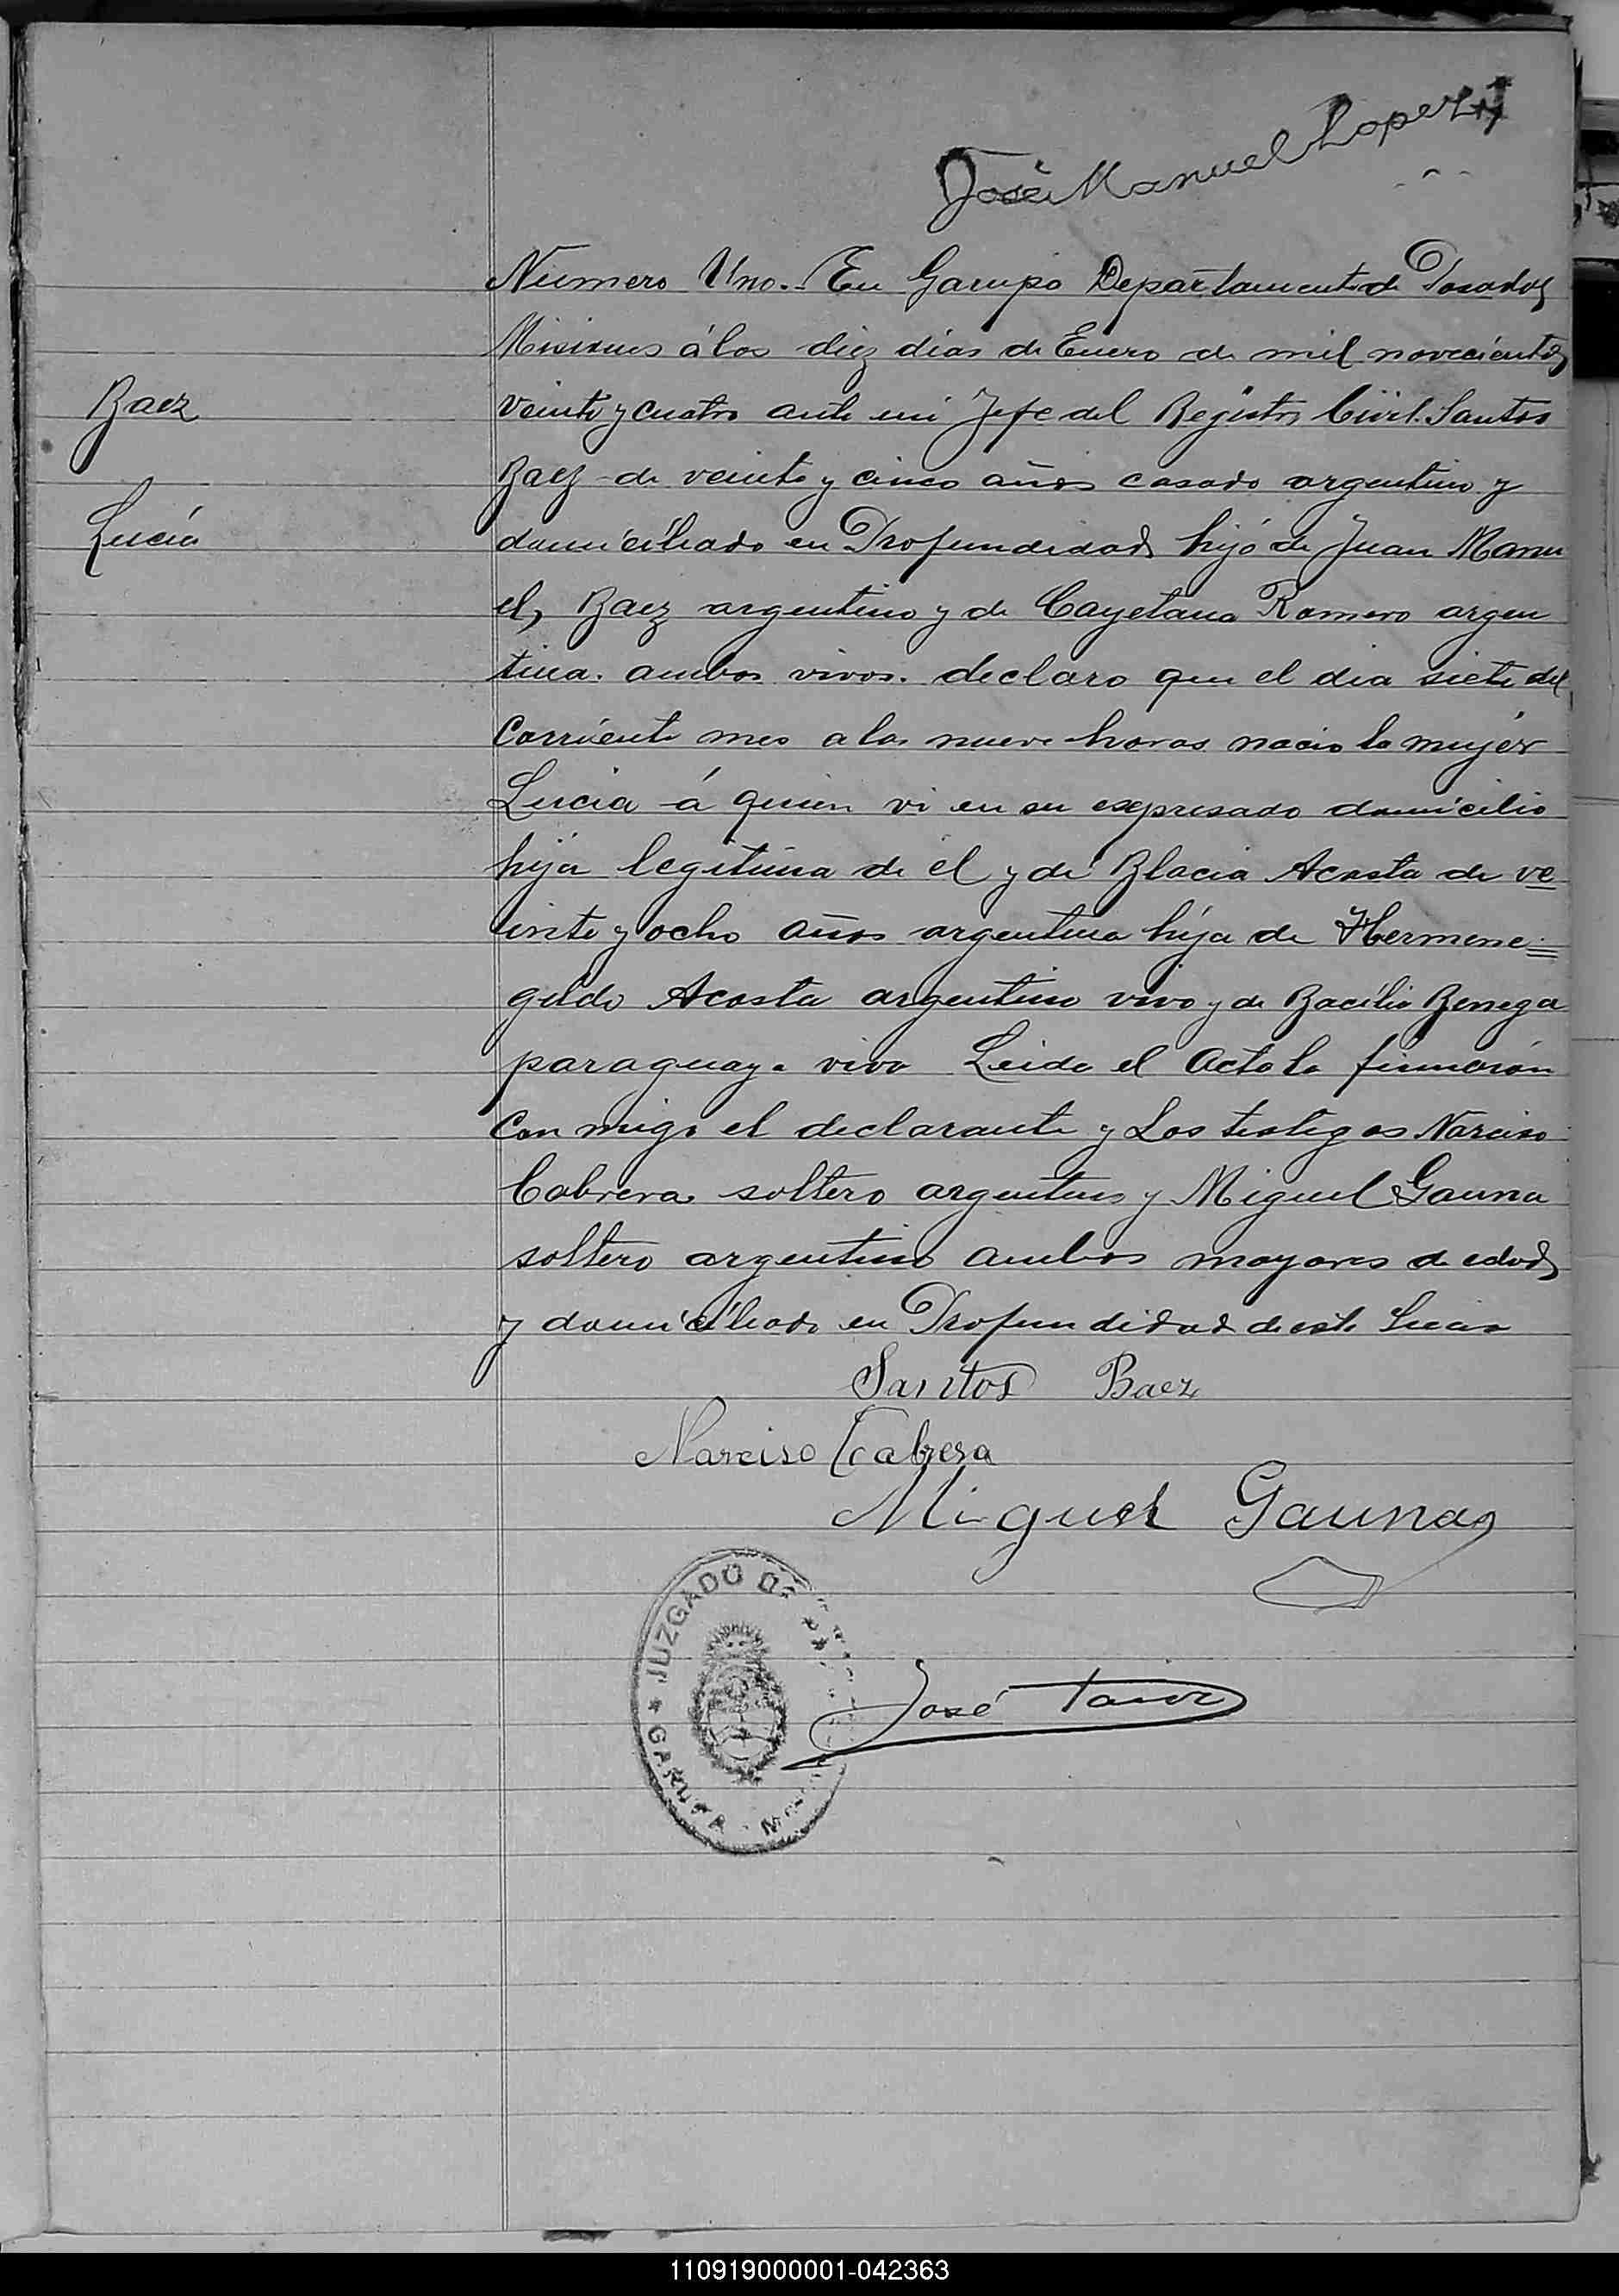 José Manuel Lopez 1
Número Uno. En Garupa Departamento de Posadas
Misiones á los diez dias de Enero de mil novecientos
Baez
veinte y cuatro ante mi Jefe del Registro Civil. Santos
Baez de veinte y cinco años casado argentino y
Lucía
domiciliado en Profundidad hijo de Juan Manu
el, Baez argentino y de Cayetana Romero argen
tina. ambos vivos. declaro que el dia siete del
Corriente mes a las nueve horas nacio la mujer
Lucia á quien vi en su expresado domicilio
hija legitima de el y de Blacia Acosta de ve
einte y ocho años argentina hija de Hermene=
gildo Acosta argentino vivo y de Bacilia Benega
paraguaya viva Leida el Acta la firmaron
Con migo el declarante y Los testigos Narciso
Cabrera soltero argentino y Miguel Gauna
soltero argentino ambos mayores de edad
y domiciliado en Profundidad de este
Santos Baez
Narciso Cabrera
Miguel Gauna
JUZGADO DE
GARUPA
José
110919000001-042363